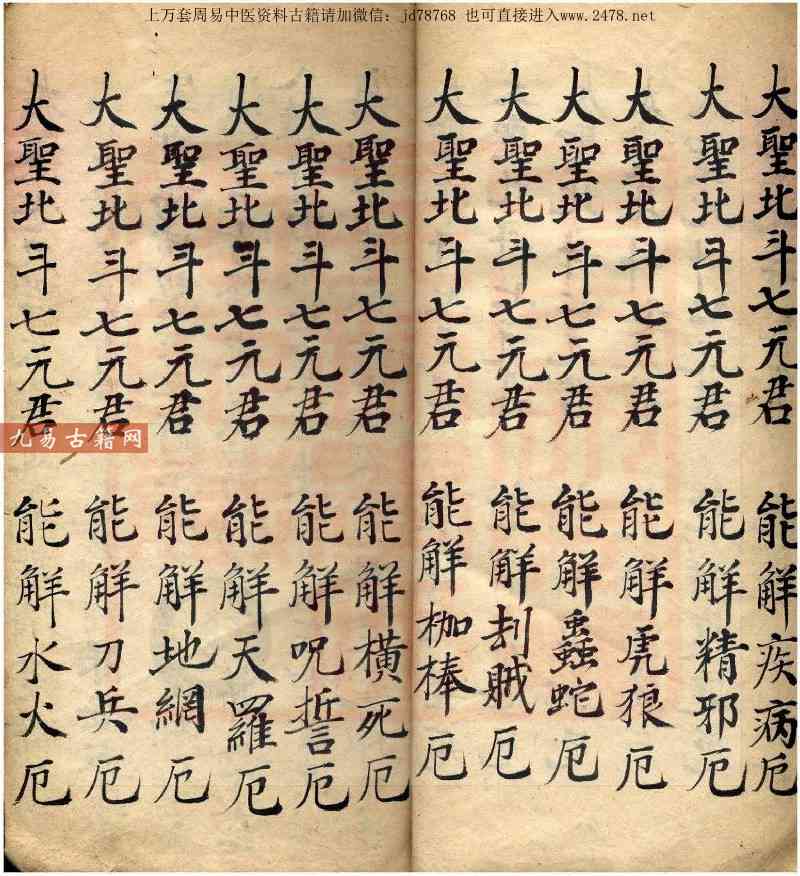 上万套周易中医资料古籍请加微信：jd78768 也可直接进入www.2478.net
大聖北斗七元君能解疾病厄
大聖北斗七元君能解精邪厄
大聖北斗七元君能解虎狼厄
大聖北斗七元君能解蟲蛇厄
大聖北斗七元君能解刦賊厄
大聖北斗七元君能解枷棒厄
大聖北斗七元君能解横死厄
大聖北斗七元君能解咒誓厄
大聖北斗七元君能解天羅厄
大聖北斗七元君能解地網厄
大聖北斗七元君能解刀兵厄
大聖北斗七元君能解水火厄
九易古籍网